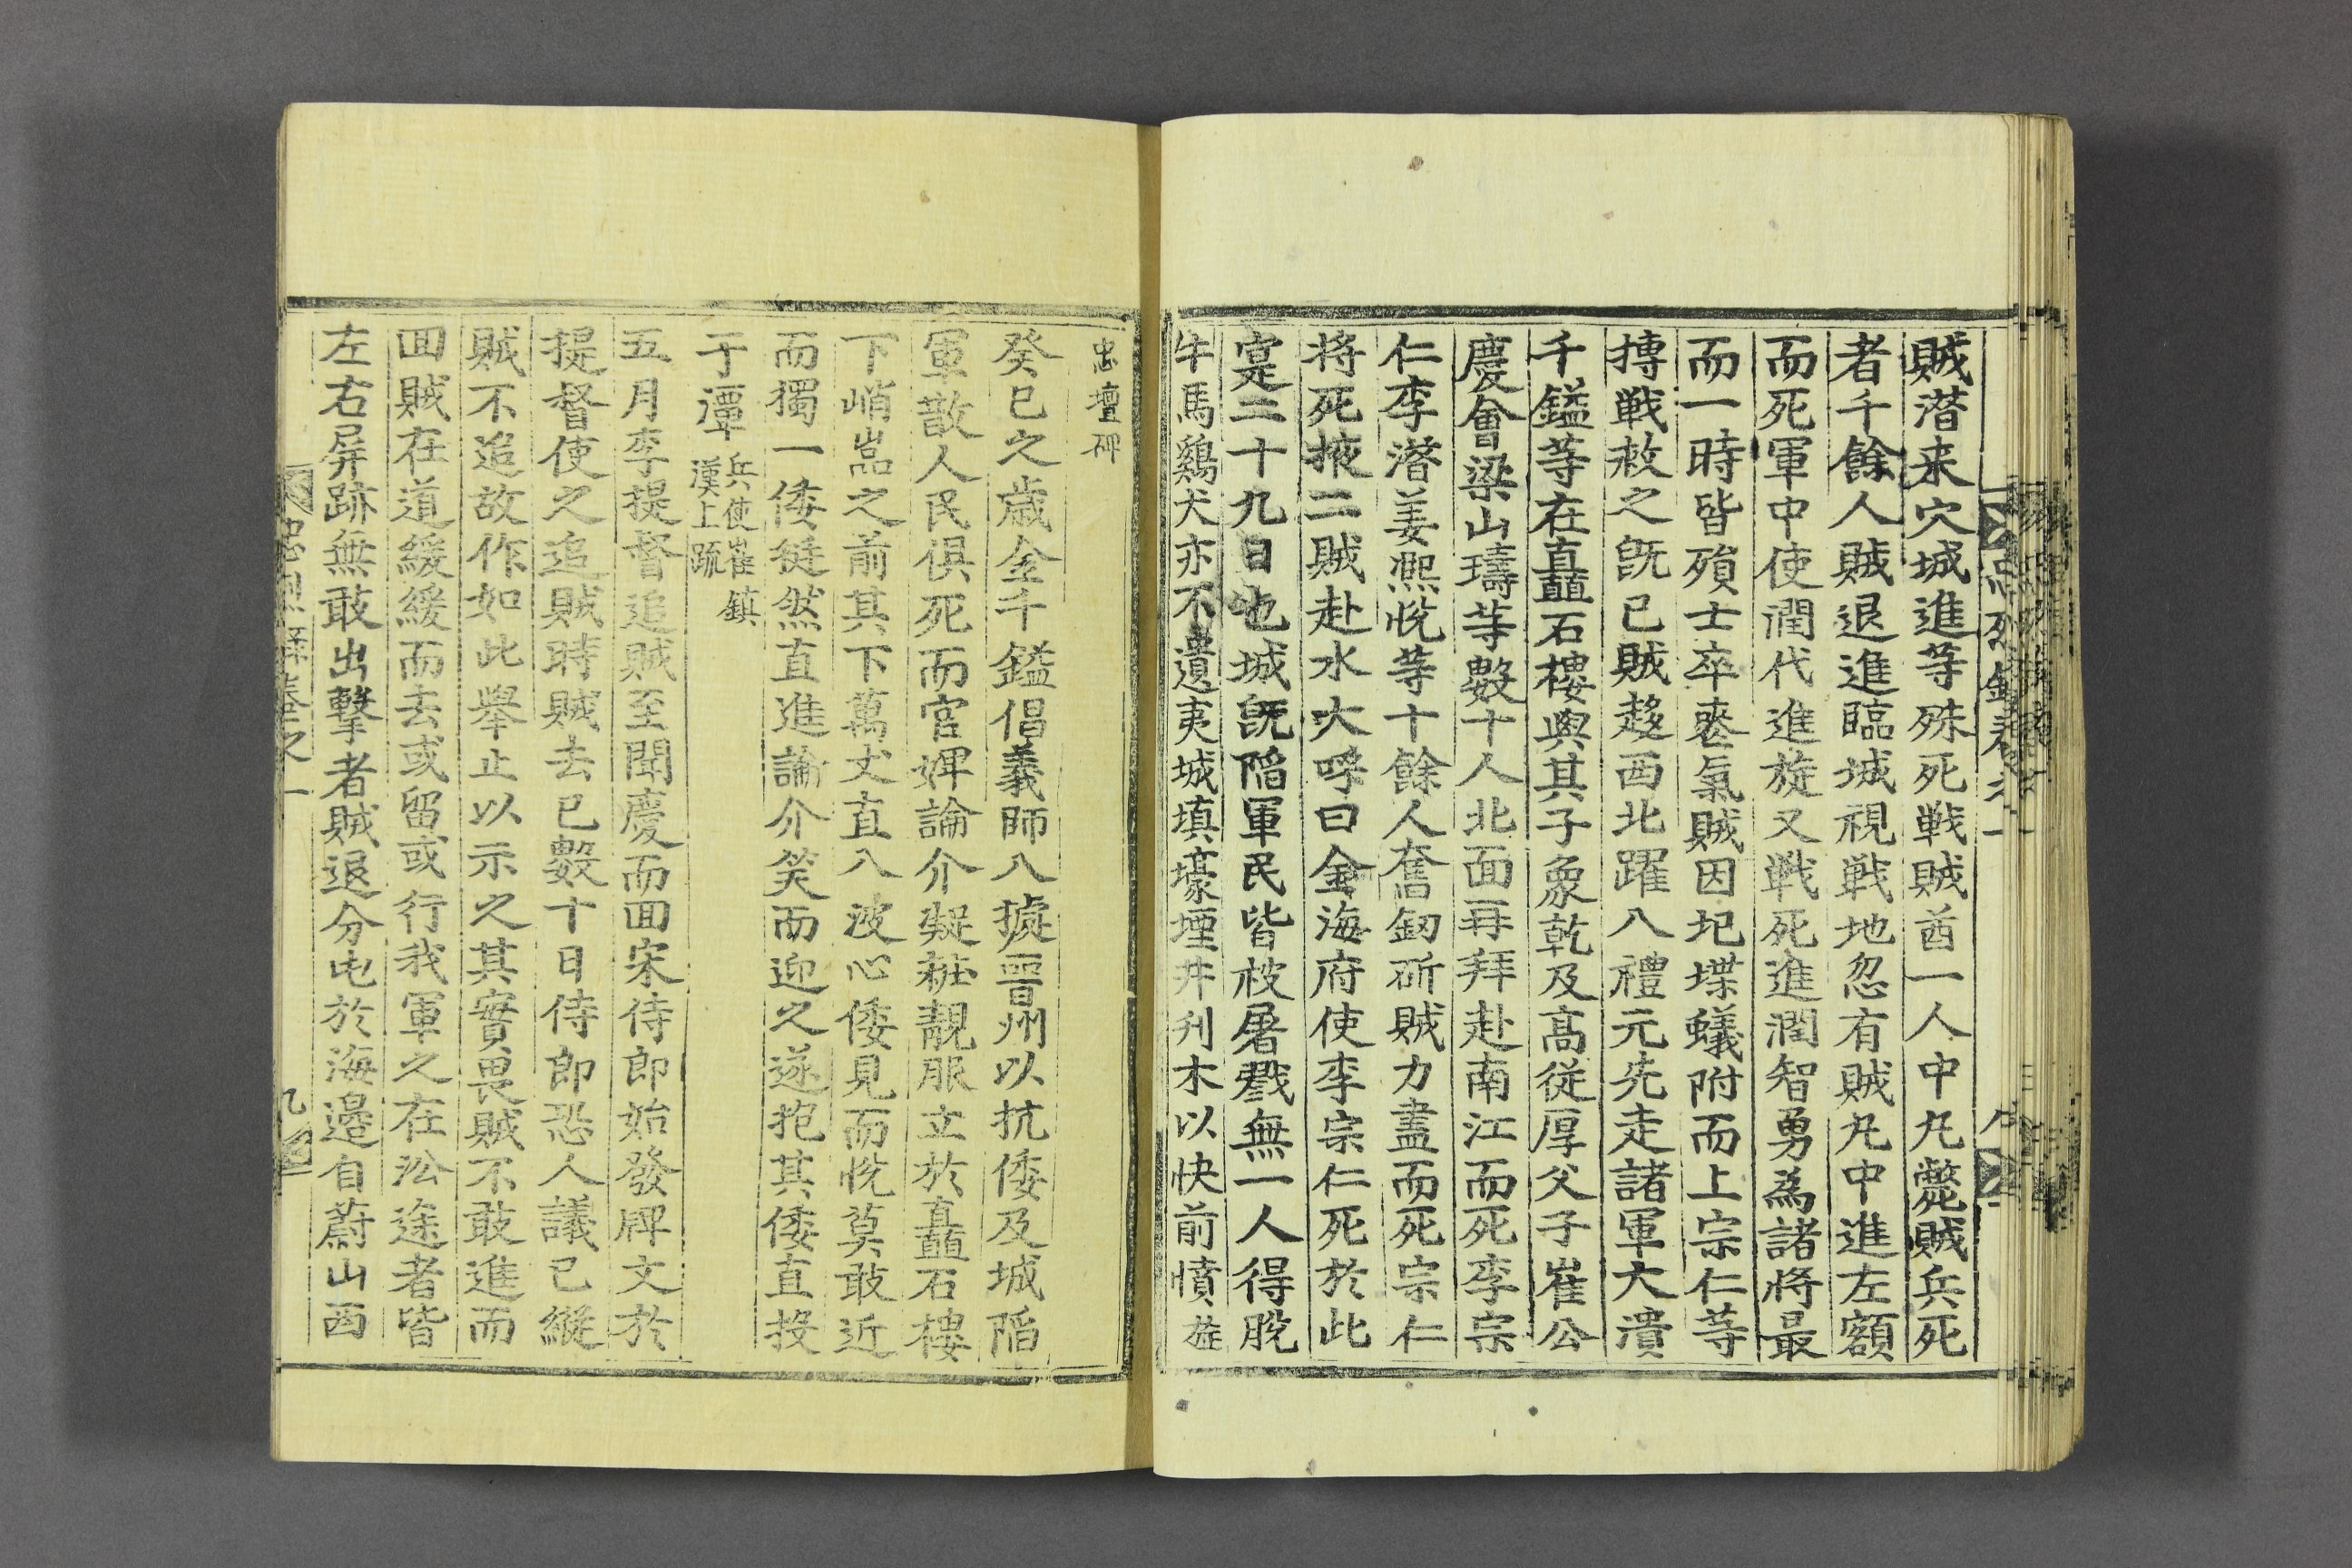 賊潛来穴城進等殊死戦賊酋一人中丸斃賊兵死
者千餘人賊退進臨城視戦地忽有賊丸中進左額
而死軍中使潤代進旋又戦死進潤智勇為諸將最
而一時皆殞士卒喪氣賊因圯堞蟻附而上宗仁等
搏戦救之旣已賊趍西北躍入禮元先走諸軍大潰
千鎰等在矗石樓與其子象乾及高從厚父子崔公
慶會梁山璹等數十人北面再拜赴南江而死李宗
仁李潛姜熙悅等十餘人奮釰斫賊力盡而死宗仁
將死挾二賊赴水大呼曰金海府使李宗仁死於此
寔二十九日也城旣陷軍民皆被屠戮無一人得脫
牛馬鷄犬亦不遺夷城填壕堙井刋木以快前憤旌
忠壇碑
癸巳之歲金千鎰倡義師入據晋州以抗倭及城陷
軍散人民俱死而官婢論介凝粧靚服立於矗石樓
下峭嵓之前其下萬丈直入波心倭見而悅莫敢近
而獨一倭挺然直進論介笑而迎之遂抱其倭直投
于潭 兵使崔鎮
漢上疏
五月李提督追賊至聞慶而回宋侍郎始發牌文於
提督使之追賊時賊去已數十日侍郎恐人議已縱
賊不追故作如此舉止以示之其實畏賊不敢進而
回賊在道緩緩而去或留或行我軍之在沿途者皆
左右屏跡無敢出擊者賊退分屯於海邊自蔚山西
忠烈錄卷之一
九